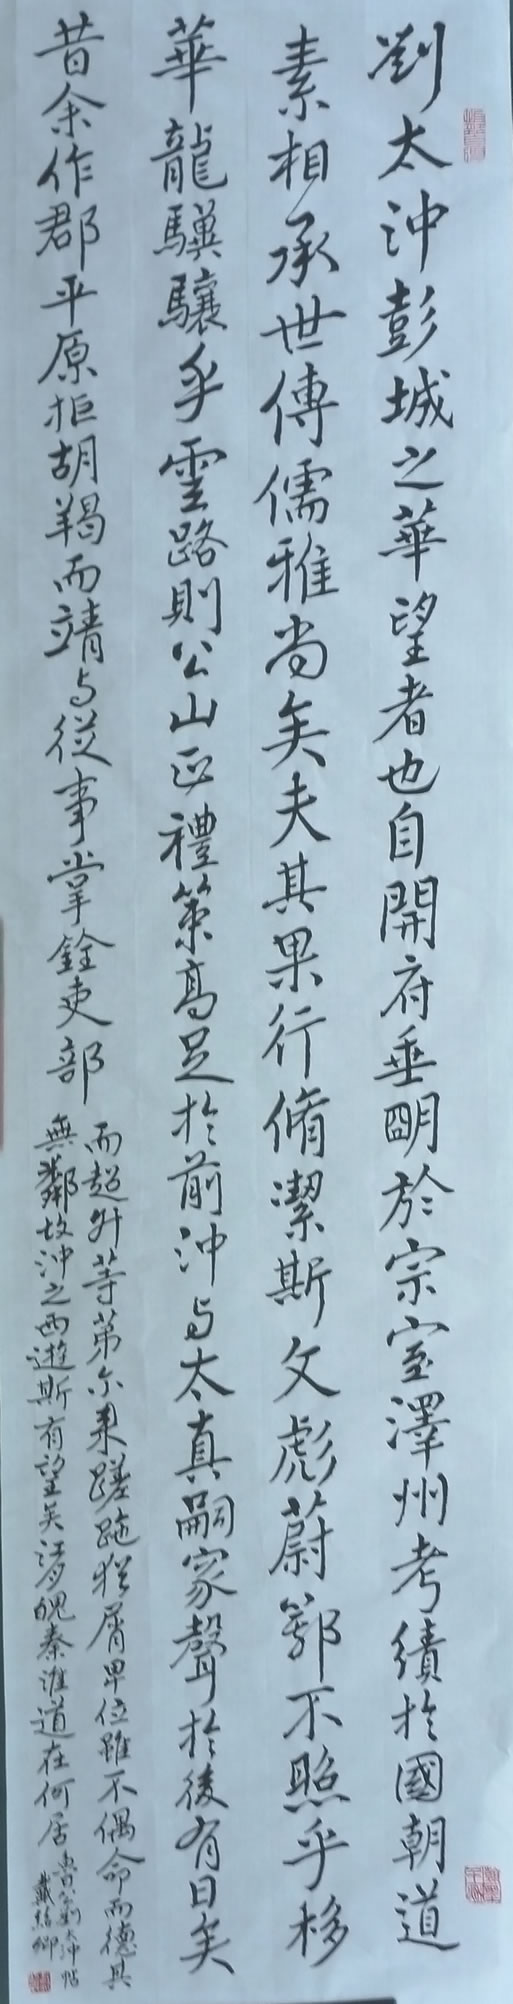 劉太沖彭城之華望者也自開府垂明於宗室澤州考績於國朝道
素相承世傳儒雅尚矣夫其果行脩潔斯文彪蔚鄂不照乎棣
華龍驥驤乎雲路則公山正禮策高足於前沖与太真嗣家聲於後有日矣
昔余作郡平原拒胡羯而靖与從事掌銓吏部
而超升等第尔来蹉跎猶屑卑位雖不偶命而德其
無鄰故沖之西遊斯有望矣江月魄秦淮道在何居
魯公劉太沖帖
戴